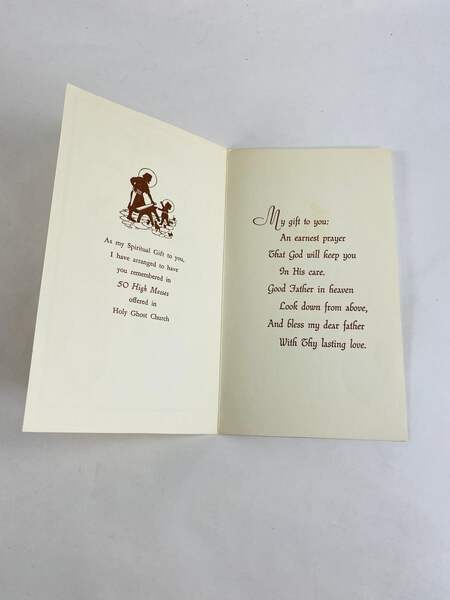 As my Spiritual Gift to you,
I have arranged to have
you remembered in
50 High Masses
offered in
Holy Ghost Church
My gift to you:
An earnest prayer
That God will keep you
In His care.
Good Father in heaven
Look down from above,
And bless my dear father
With Thy lasting love.